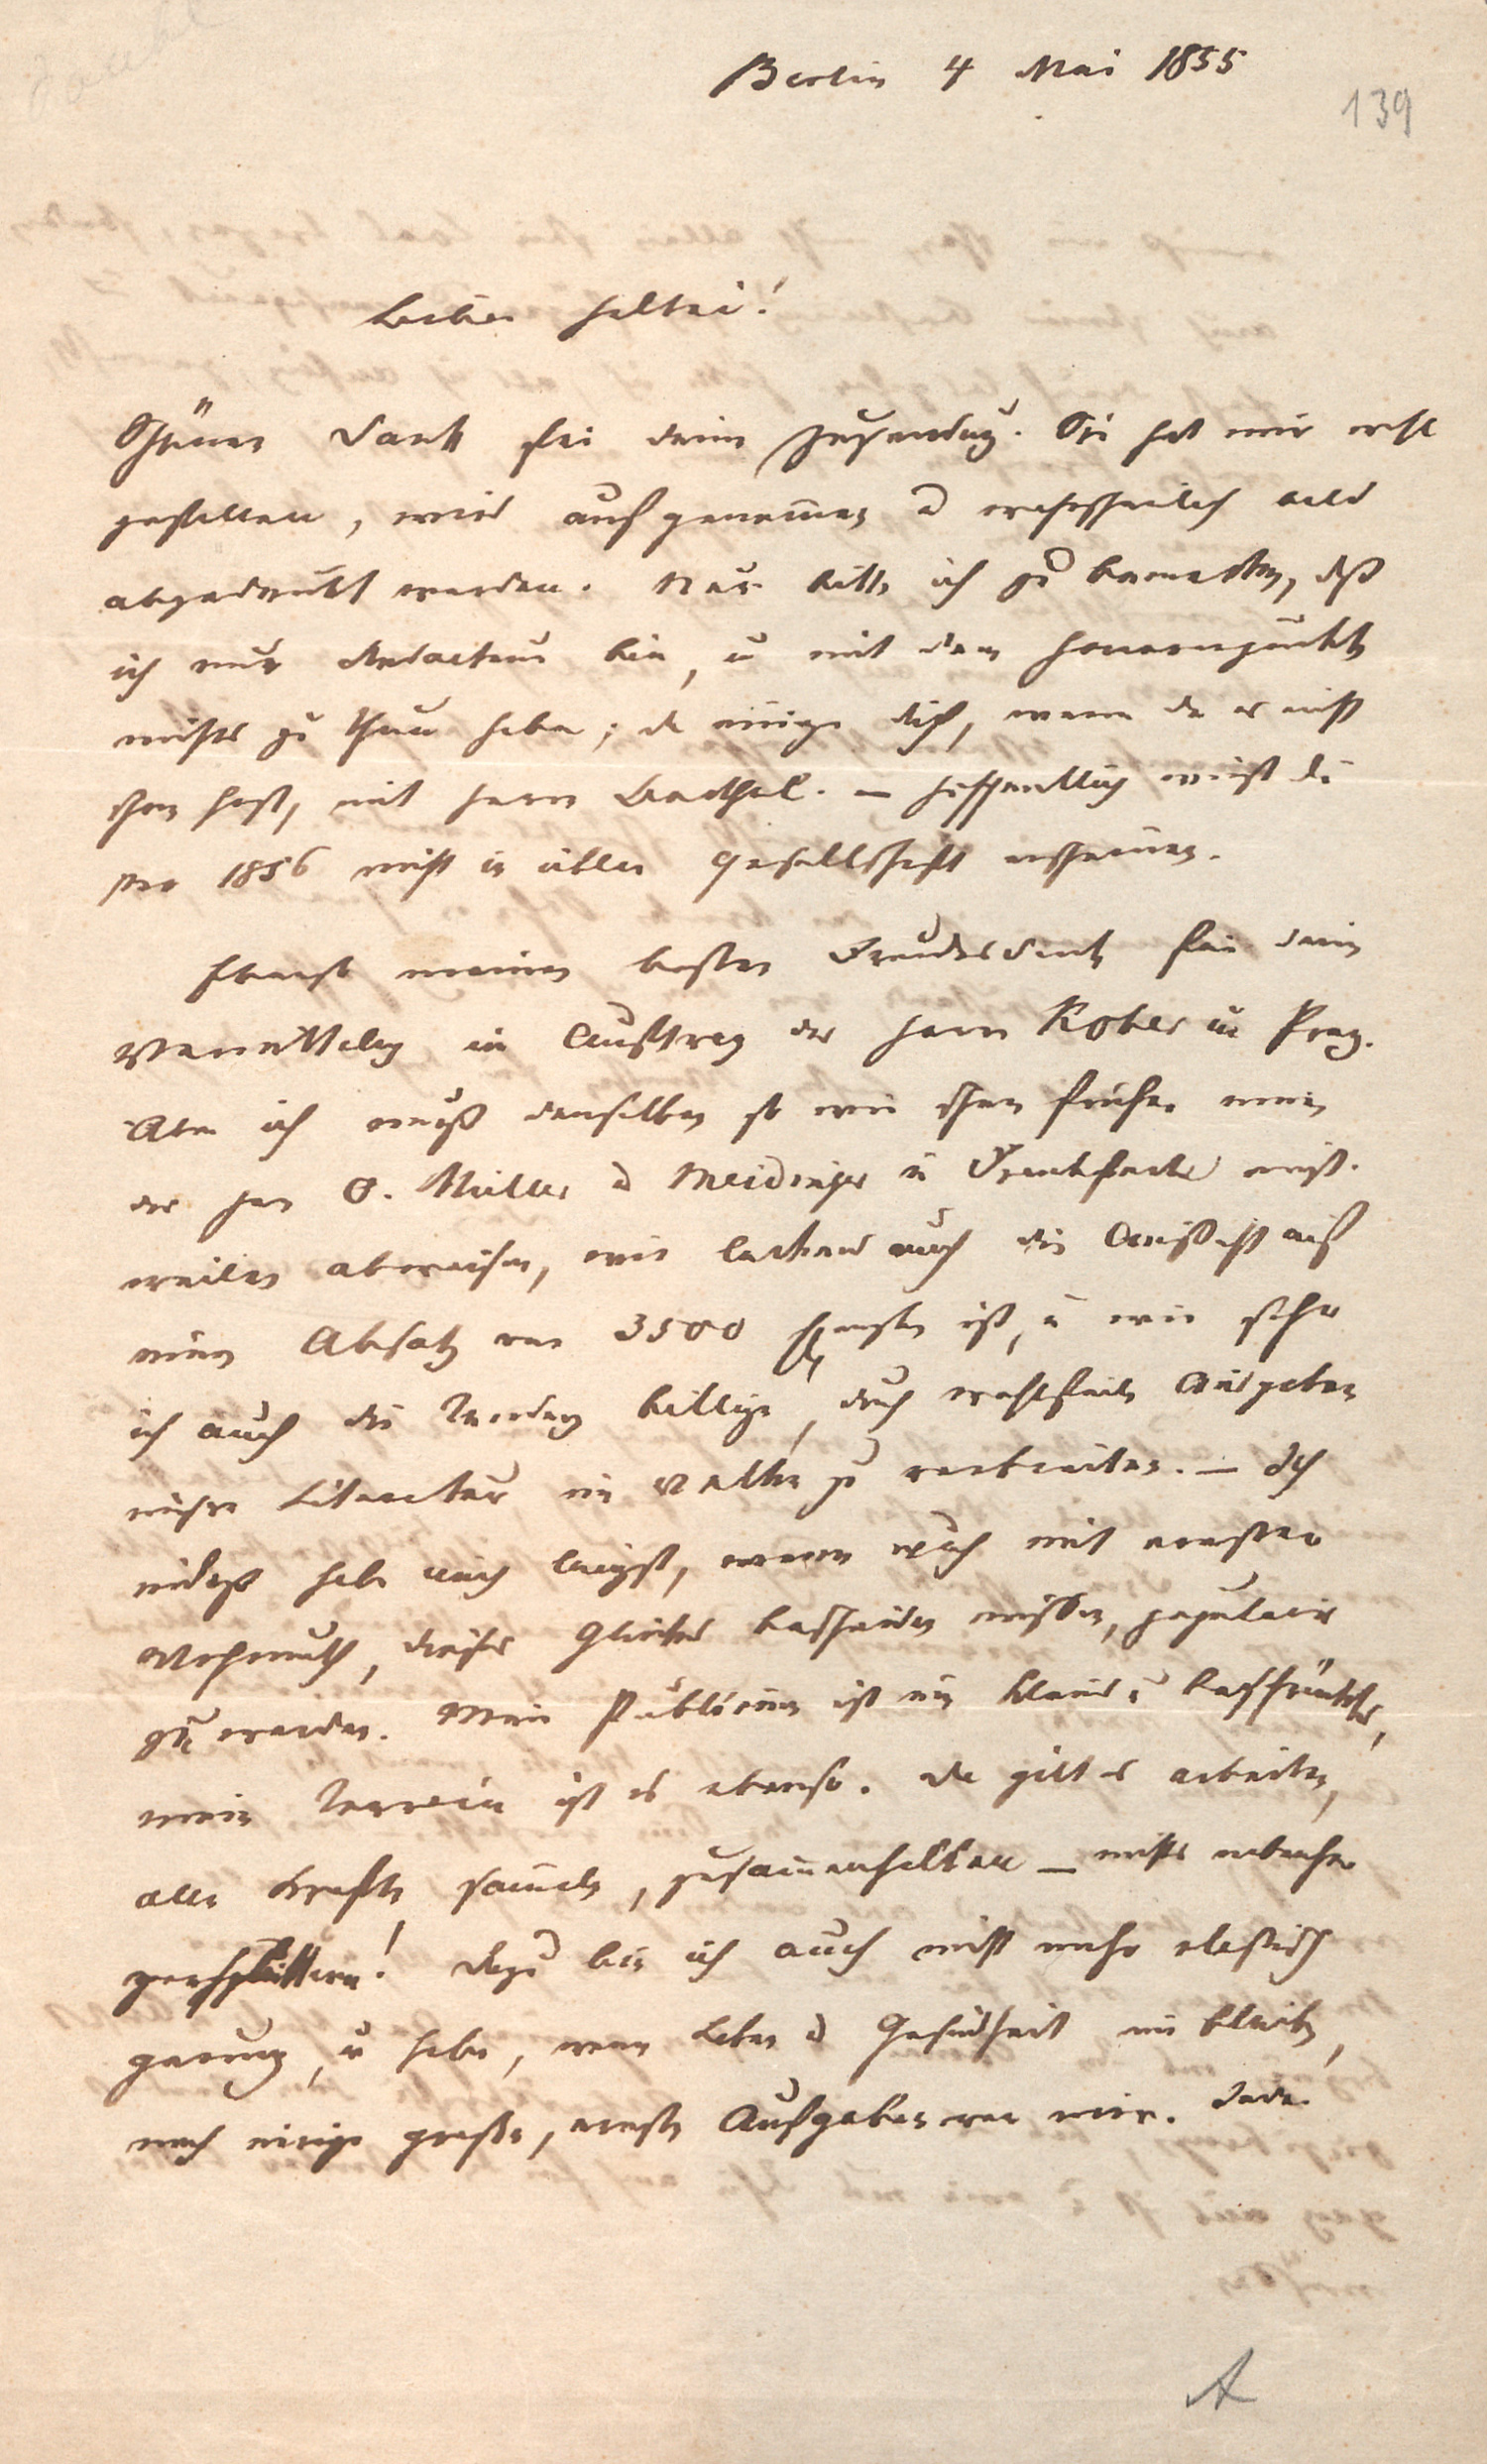 Berlin 4 Mai 1855
139
Lieber Holtei!
Schönen Dank für deine Zusendung. Sie hat mir wohl
gefallen, wird aufgenommen u wahrscheinlich bald
abgedruckt werden. Nur bitte ich zu bemerken, daß
ich nur Redacteur bin, u mit dem Honorarpunkte
nichts zu thun habe; du einige dich, wenn du es nicht
schon hast, mit Herrn Barthol. – Hoffentlich wirst du
pro 1856 nicht in übler Gesellschaft erscheinen.
Ebenso meinen besten Freundesdank für deine
Vermittelung im Auftrag des Herrn Kober in Prag.
Aber ich muß denselben so wie schon früher einen
der Herrn O. Müller u Meidinger in Frankfurt
weilen abweisen, wie lockend auch die Aussicht auf
einen Absatz von 3500 ist, u wie sehr
ich auch die Tendenz billige, durch wohlfeile Ausgaben
unsre Literatur im Volke zu verbreiten. – Ich
indeß habe mich längst, wenn auch mit ernster
Wehmuth, dieses Glückes bescheiden müssen, populair
zu werden. Mein Publicum ist ein kleines u beschränktes,
mein Terrain ist es ebenso. Da gilt es arbeiten,
alle Kräfte sammeln, zusammenhalten – nichts nebenher
zersplittern! Dazu bin ich auch nicht mehr elastisch
genug, u habe, wenn Leben u Gesundheit mir bleibt,
noch einige große, ernste Aufgaben vor mir.
A